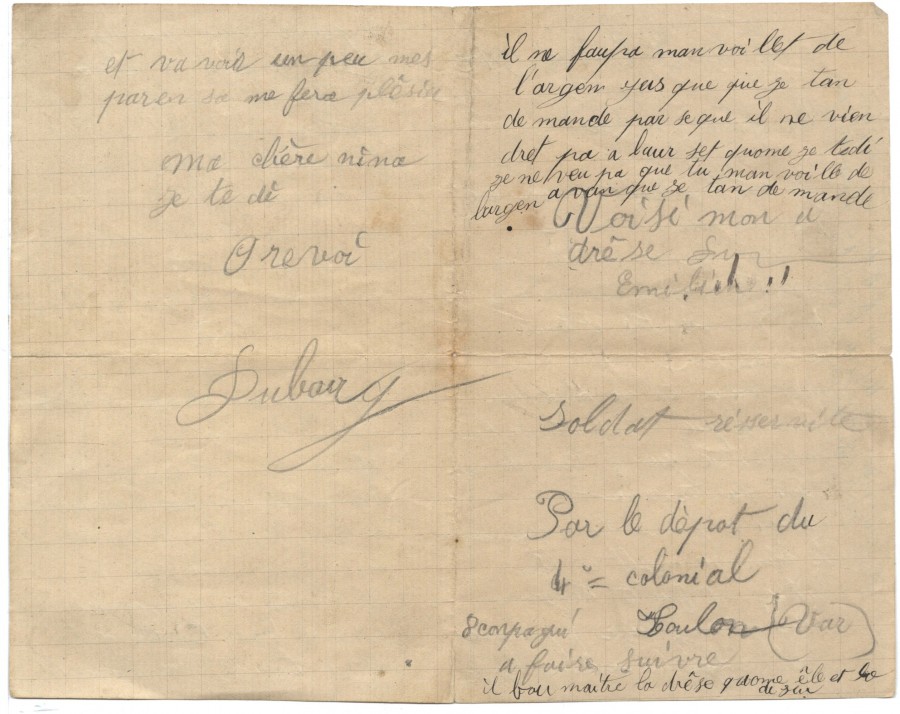 et va voir un peu mes
paren sa me fera plêsir
Ma chère nina
je te di
Orevoi
Dubourg
il ne faupa man voi llet de
l'argem gus que que je tan
de mande par se que il ne vien
dret pa a laur set quome je tedi
je ne veu pa que tu man voille de
largen avan que je tan de mande
Voisi mon a
drêse
Emi
Soldat réserviste
Par le dèpot du
4° = colonial
Toulon (Var)
8 conpagni
a faire suivre
il bau maitre la drêse quome êle et
de sur